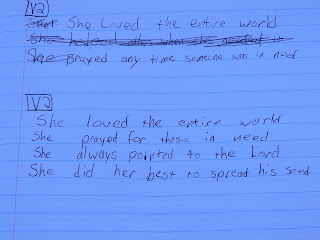 V2
She She Loved the entire world
She helped others when she needed it
She prayed any time someone was in need
V2
She loved the entire world
She prayed for those in need
She always pointed to the Lord
She did her best to spread his seed